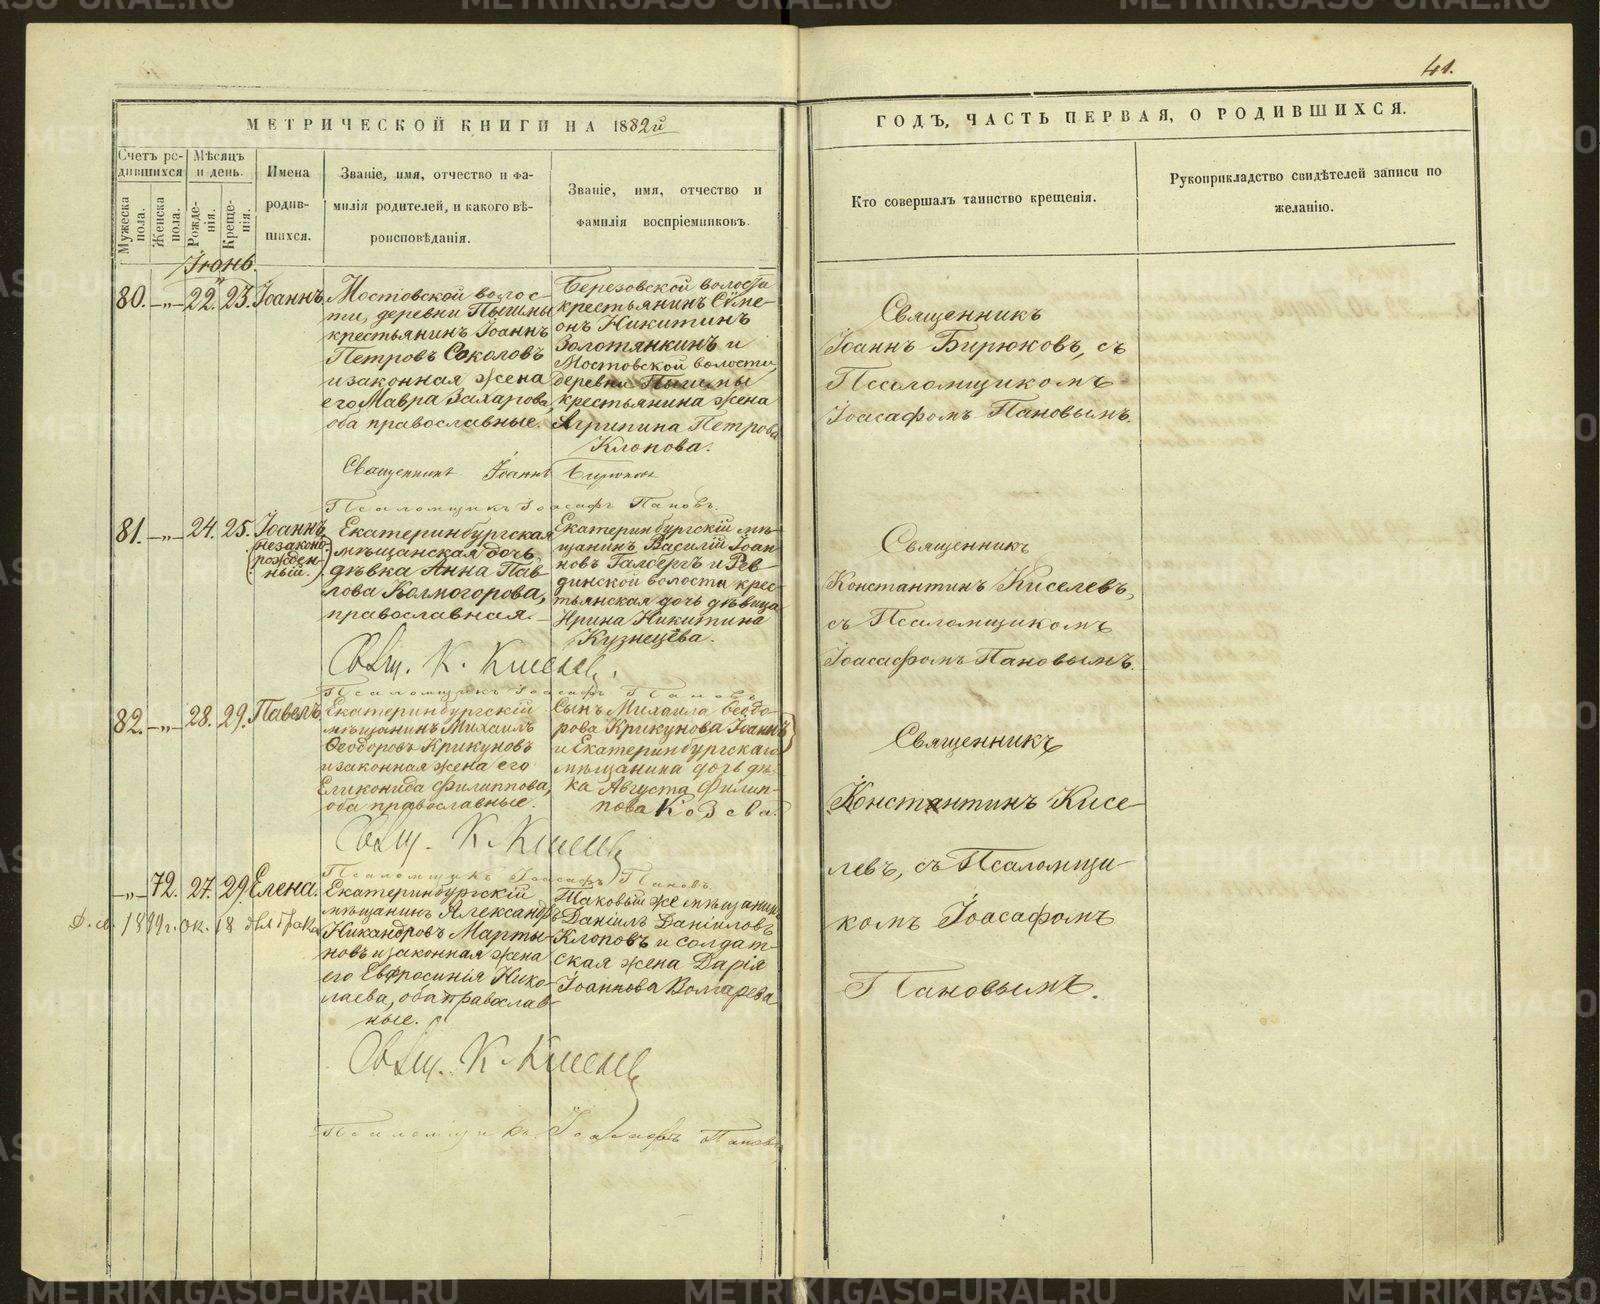 41.
МЕТРИЧЕСКОЙ КНИГИ НА 1882й
ГОДЪ, ЧАСТЬ ПЕРВАЯ, О РОДИВШИХСЯ.
Счетъ ро-
дившихся
Мужеска пола.
Женска пола.
Мѣсяцъ
и день.
Рожде-
нія.
Креще-
нія.
Имена
родив-
шихся.
Званіе, имя, отчество и фа-
милія родителей, и какого вѣ-
роисповѣданія.
Званіе, имя, отчество и
фамилія воспріемниковъ.
Кто совершалъ таинство крещенія.
Рукоприкладство свидѣтелей записи по
желанію.
Іюнь.
80. —„— 22. 23. Іоаннъ
Мостовской волос-
ти, деревни Пышмы
крестьянинъ Іоаннъ
Петровъ Соколовъ
и законная жена
его Мавра Захарова,
оба православные.
Березовской волости
крестьянинъ Симе-
онъ Никитинъ
Золотянкинъ и
Мостовской волости,
деревни Пышмы
крестьянина жена
Агрипина Петрова
Клопова.
Священникъ
Іоаннъ Бирюковъ, съ
Псаломщикомъ
Іоасафомъ Пановымъ.
Священникъ Іоаннъ Бирюковъ
Псаломщикъ Іоасафъ Пановъ.
81. —„— 24. 25. Іоаннъ
(незаконо-
рожден-
ный.)
Екатеринбургская
мѣщанская дочь,
дѣвка Анна Пав-
лова Колмогорова,
православная.
Екатеринбургскій мѣ-
щанинъ Василій Іоан-
новъ Галбергъ и Рев-
динской волости крес-
тьянская дочь дѣвица
Ирина Никитина
Кузнецева.
Священникъ
Константинъ Киселевъ,
съ Псаломщикомъ
Іоасафомъ Пановымъ.
Свящ. К. Киселевъ
Псаломщикъ Іоасафъ Пановъ
82. —„— 28. 29. Павелъ
Екатеринбургскій
мѣщанинъ Михаилъ
Ѳеодоровъ Крикуновъ
и законная жена его
Еликонида Филиппова,
оба православные.
Сынъ Михаила Ѳеодо-
рова Крикунова Іоаннъ
и Екатеринбургскаго
мѣщанина дочь дѣв-
ка Августа Филип-
пова Козева.
Священникъ
Константинъ Кисе-
левъ, съ Псаломщи-
комъ Іоасафомъ
Пановымъ.
Свящ. К. Киселевъ
Псаломщикъ Іоасафъ Пановъ.
—„— 72. 27. 29. Елена.
Екатеринбургскій
мѣщанинъ Александръ
Никандровъ Марты-
новъ и законная жена
его Евфросинія Нико-
лаева, оба православ-
ные.
Таковый же мѣщанинъ
Даніилъ Даніиловъ
Клоповъ и солдат-
ская жена Дарія
Іоаннова Волгарева
1899 г. ок. 18 для брака
Свящ. К. Киселевъ
Псаломщикъ Іоасафъ Пановъ
METRIKI.GASO-URAL.RU